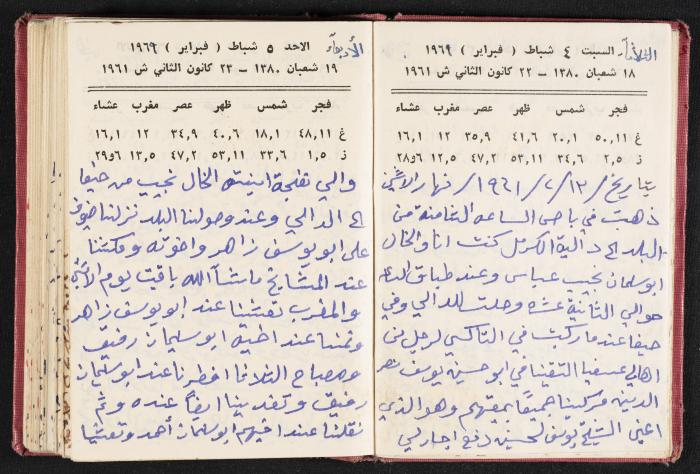 الثلاثاء
السبت ٤ شباط ( فبراير ) ١٩٦٩
١٨ شعبان ١٣٨٠ – ٢٢ كانون الثاني ش ١٩٦١
فجر شمس ظهر عصر مغرب عشاء
غ ٥٠,١١ ٢٠,١ ٤١,٦ ٣٥,٩ ١٢ ١٦,١
ز ٢,٥ ٣٤,٦ ٥٣,١١ ٤٧,٢ ١٢,٥ ٢٨و٦
بتاريخ / ١٣ / ٢ / ١٩٦١ / نهار الاثنين
ذهبت في باص الساعه الثامنة من
البلد الى دالية الكرمل كنت انا والخال
ابو سلمان نجيب عباس وعند
حوالي الثانية عشره وصلت للدالي وفي
حيفا عندما ركبت في التاكسي لرجل من
اهالي عسفيا التقينا في ابو حسين يوسف
الدين فركبنا جميعًا بمعيتهم وهو الذي
اعني الشيخ يوسف حسين دفع اجار
الأربعاء
الاحد ٥ شباط ( فبراير ) ١٩٦٩
١٩ شعبان ١٣٨٠ – ٢٣ كانون الثاني ش ١٩٦١
فجر شمس ظهر عصر مغرب عشاء
غ ٤٨,١١ ١٨,١ ٤٠,٦ ٣٤,٩ ١٢ ١٦,١
ز ١,٥ ٣٣,٦ ٥٣,١١ ٤٧,٢ ١٣,٥ ٢٩و٦
والي ابنيته الخال نجيب من حيفا
الى الدالي وعند وصولنا البلد نزلنا ضيوف
على ابو يوسف زاهر واخوته ومكثنا
عند المشايخ ماشآ الله باقت يوم الاثنين
والمغرب تعشينا عند ابو يوسف زاهر
ونمنا عند ابو سلمان رفيق
وصباح الثلاثا افطرنا عند ابو سلمان
رفيق وتغدينا ايضًا عنده وثم
نقلنا عند اخيهم ابو سلمان أحمد وتعشينا